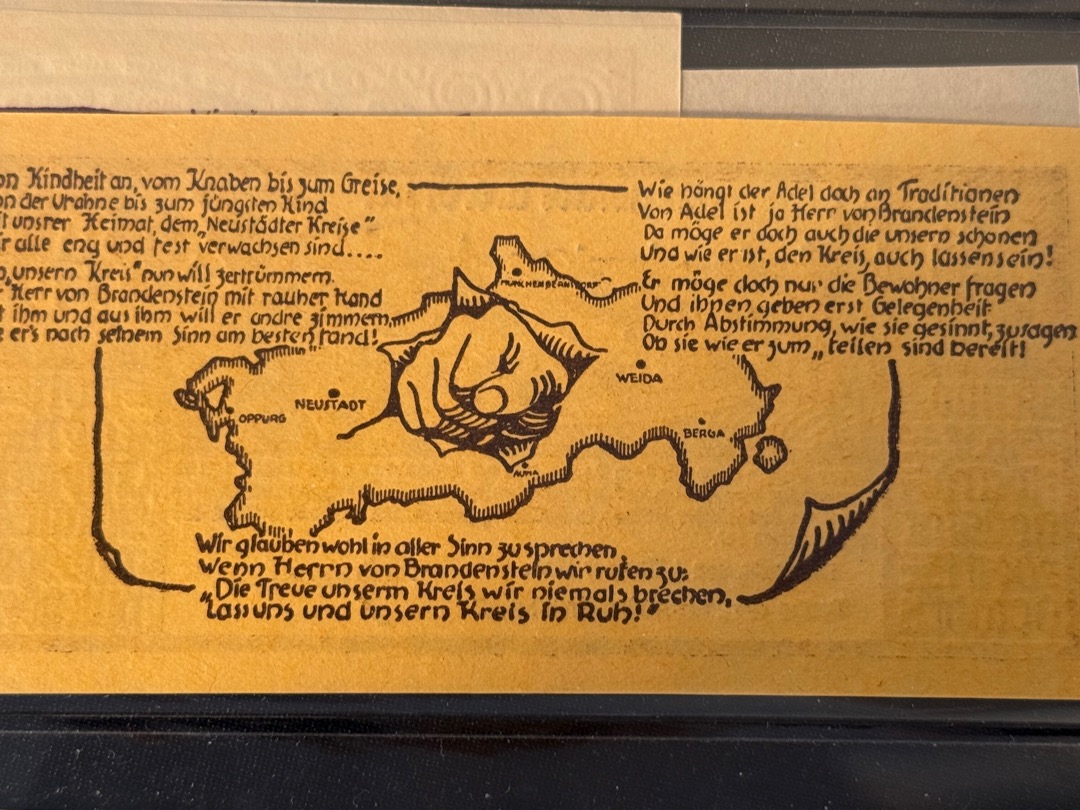 on Kindheit an, vom Knaben bis zum Greise,
on der Urahne bis zum jüngsten Kind
it unsrer Heimat, dem „Neustädter Kreise“
ir alle eng und fest verwachsen sind....
„unsern Kreis“ nun will zertrümmern.
r Herr von Brandenstein mit rauher Hand
t ihm und aus ihm will er andre zimmern,
e er's nach seinem Sinn am besten fand!
Wie hängt der Adel doch an Traditionen
Von Adel ist ja Herr von Brandenstein
Da möge er doch auch die unsern schonen
Und wie er ist, den Kreis, auch lassen sein!
Er möge doch nur die Bewohner fragen
Und ihnen geben erst Gelegenheit
Durch Abstimmung, wie sie gesinnt, zusagen
Ob sie wie er zum „teilen sind bereit!
MÜNCHENBERNSDORF
WEIDA
NEUSTADT
OPPURG
BERGA
AUMA
Wir glauben wohl in aller Sinn zu sprechen,
Wenn Herrn von Brandenstein wir rufen zu:
„Die Treue unserm Kreis wir niemals brechen,
Lass uns und unsern Kreis in Ruh!“